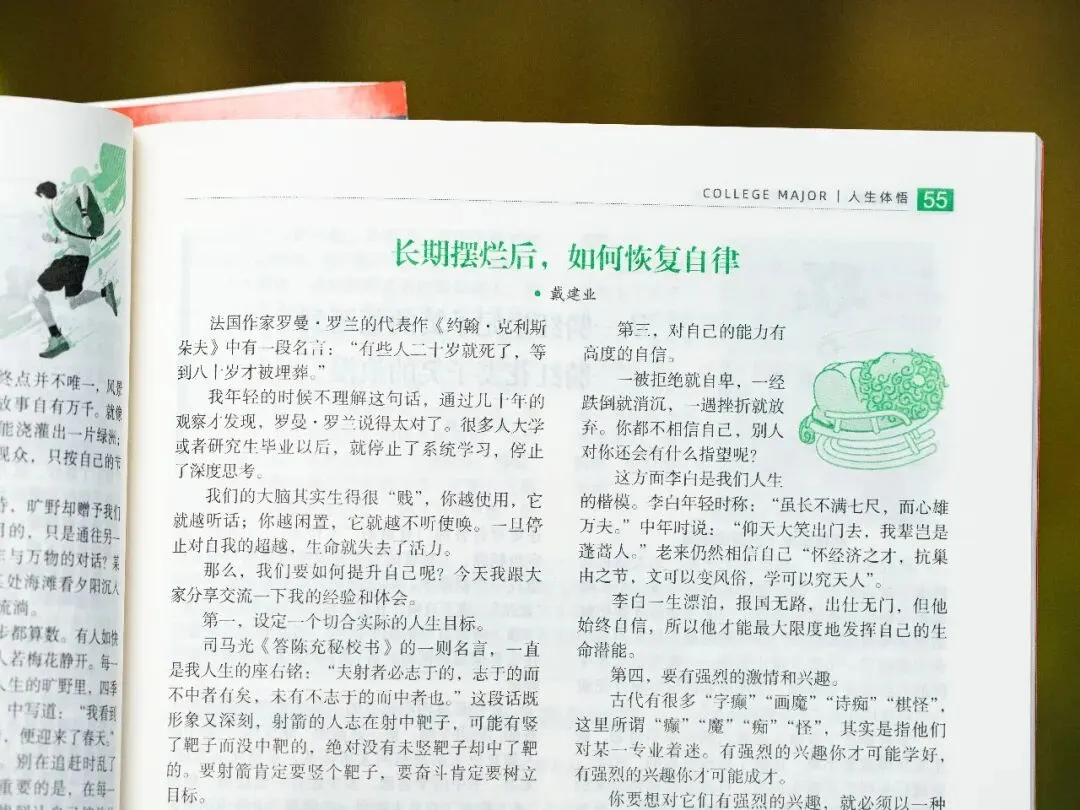 COLLEGE MAJOR | 人生体悟 55
长期摆烂后,如何恢复自律
• 戴建业
法国作家罗曼·罗兰的代表作《约翰·克利斯
朵夫》中有一段名言:“有些人二十岁就死了,等
到八十岁才被埋葬。”
我年轻的时候不理解这句话,通过几十年的
观察才发现,罗曼·罗兰说得太对了。很多人大学
或者研究生毕业以后,就停止了系统学习,停止
了深度思考。
我们的大脑其实生得很“贱”,你越使用,它
就越听话;你越闲置,它就越不听使唤。一旦停
止对自我的超越,生命就失去了活力。
那么,我们要如何提升自己呢?今天我跟大
家分享交流一下我的经验和体会。
第一,设定一个切合实际的人生目标。
司马光《答陈充秘校书》的一则名言,一直
是我人生的座右铭:“夫射者必志于的,志于的而
不中者有矣,未有不志于的而中者也。”这段话既
形象又深刻,射箭的人志在射中靶子,可能有竖
了靶子而没中靶的,绝对没有未竖靶子却中了靶
的。要射箭肯定要竖个靶子,要奋斗肯定要树立
目标。
第三,对自己的能力有
高度的自信。
一被拒绝就自卑,一经
跌倒就消沉,一遇挫折就放
弃。你都不相信自己,别人
对你还会有什么指望呢?
这方面李白是我们人生
的楷模。李白年轻时称:“虽长不满七尺,而心雄
万夫。”中年时说:“仰天大笑出门去,我辈岂是
蓬蒿人。”老来仍然相信自己“怀经济之才,抗巢
由之节,文可以变风俗,学可以究天人”。
李白一生漂泊,报国无路,出仕无门,但他
始终自信,所以他才能最大限度地发挥自己的生
命潜能。
第四,要有强烈的激情和兴趣。
古代有很多“字癫”“画魔”“诗痴”“棋怪”,
这里所谓“癫”“魔”“痴”“怪”,其实是指他们
对某一专业着迷。有强烈的兴趣你才可能学好,
有强烈的兴趣你才可能成才。
你要想对它们有强烈的兴趣,就必须以一种
终点并不唯一,风景
故事自有万千。就像
能浇灌出一片绿洲;
观众,只按自己的节
待,旷野却赠予我们
目的,只是通往另一
与万物的对话?某
某处海滩看夕阳沉入
流淌。
步都算数。有人如快
人若梅花静开。每一
人生的旷野里,四季
中写道:“我看到
,便迎来了春天。”
。别在追赶时乱了
重要的是,在每一